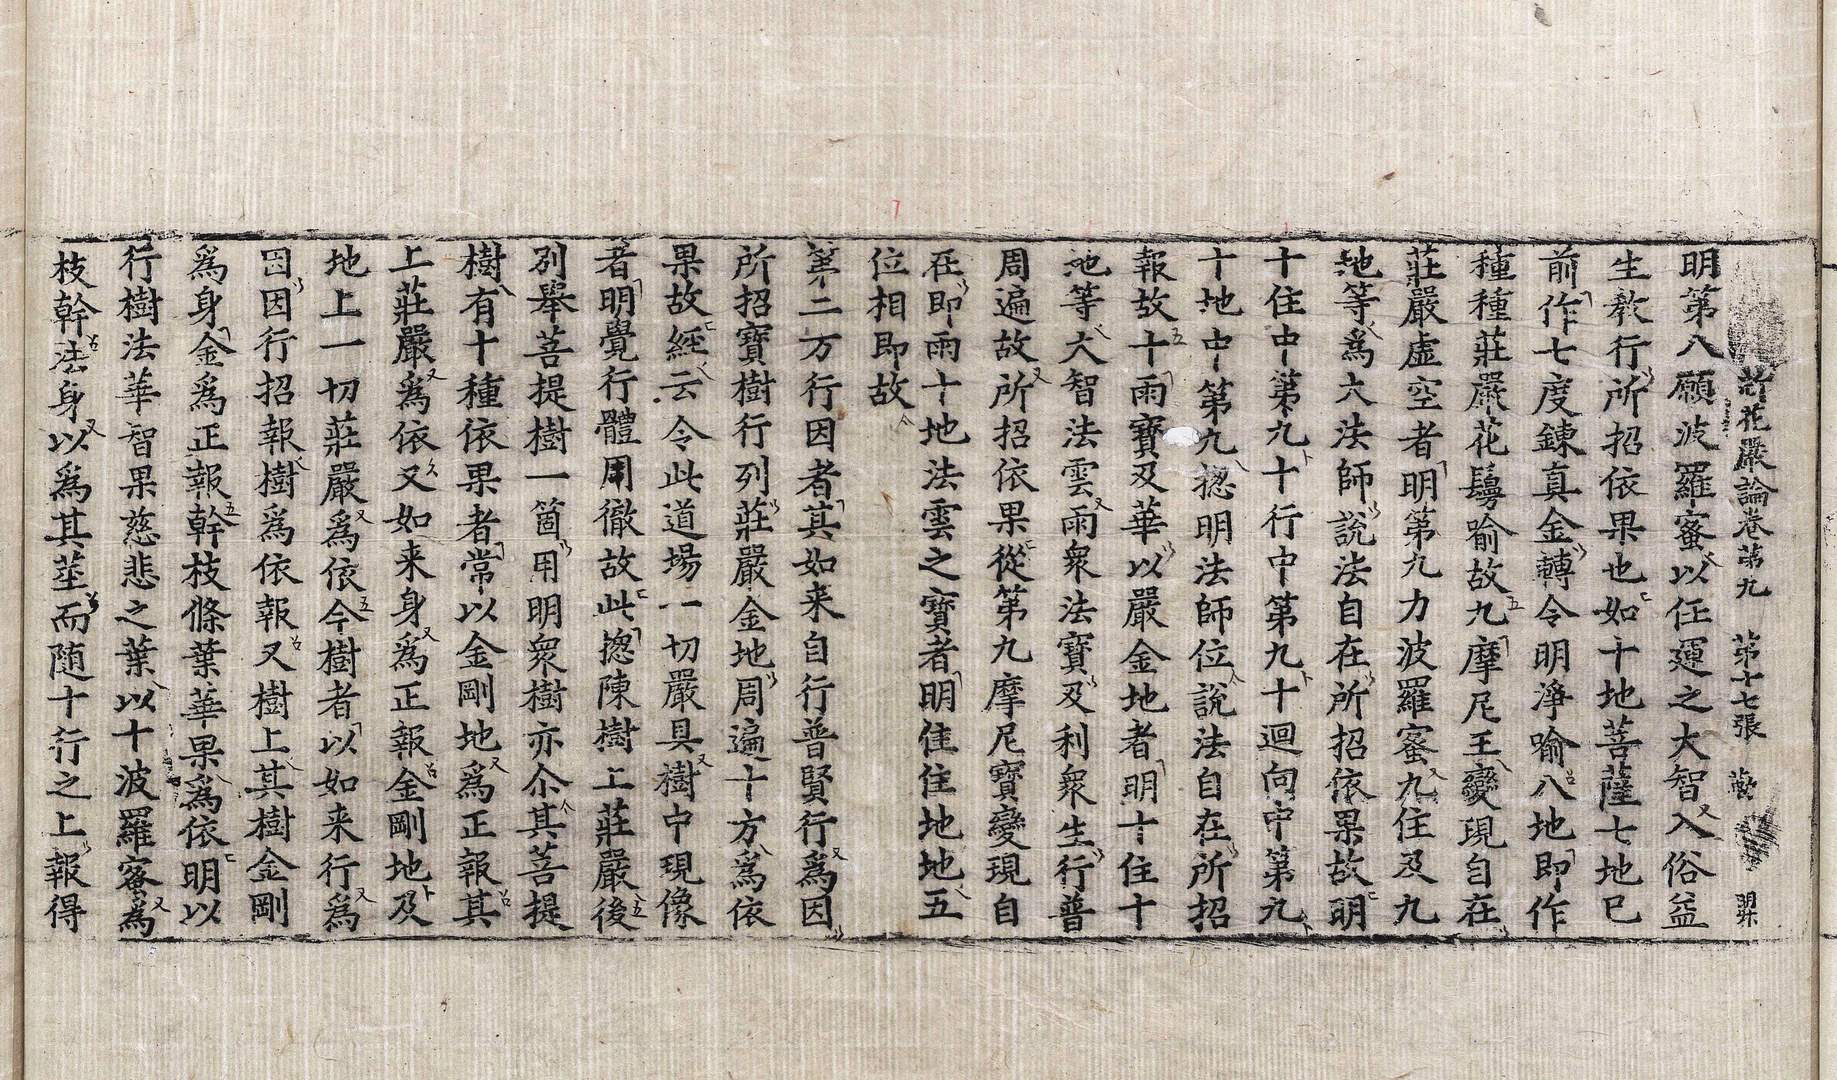 新花嚴論卷第九 第十七張
明第八願波羅蜜以任運之大智入俗益
生敎行所招依果也如十地菩薩七地已
前作七度鍊真金轉令明淨喻八地即作
種種莊嚴花鬘喻故九摩尼王變現自在
莊嚴虛空者明第九力波羅蜜九住及九
地等爲大法師說法自在所招依果故明
十住中第九十行中第九十迴向中第九
十地中第九揔明法師位說法自在所招
報故十雨寶及華以嚴金地者明十住十
地等大智法雲雨衆法寶及利衆生行普
周遍故所招依果從第九摩尼寶變現自
在即雨十地法雲之寶者明住住地地五
位相即故
第二万行因者其如来自行普賢行爲因
所招寶樹行列莊嚴金地周遍十方爲依
果故經云令此道場一切嚴具樹中現像
者明覺行體用徹故此揔陳樹上莊嚴後
列舉菩提樹一箇用明衆樹亦尒其菩提
樹有十種依果者常以金剛地爲正報其
上莊嚴爲依又如来身爲正報金剛地及
地上一切莊嚴爲依今樹者以如来行爲
因因行招報樹爲依報又樹上其樹金剛
爲身金爲正報幹枝條葉華果爲依明以
行樹法華智果慈悲之葉以十波羅蜜爲
枝幹法身以爲其莖而随十行之上報得